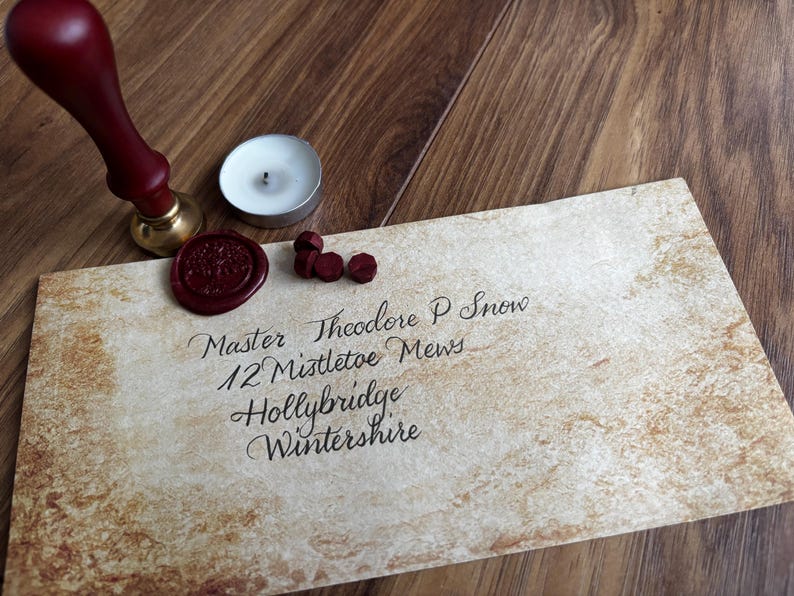 Master Theodore P Snow
12 Mistletoe Mews
Hollybridge
Wintershire